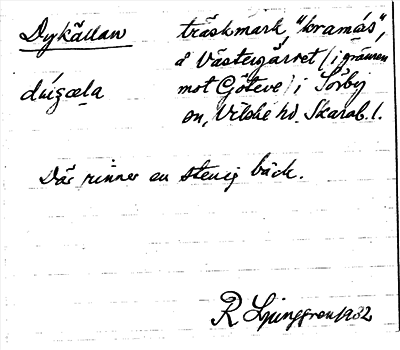 Dykällan träskmark, "kramås",
å Västergärret (i gränsen
duɩgæl̥a mot Göteve) i Sörby
sn, Vilske hd. Skarab. l.
Där rinner en stenig bäck.
R Ljunggren 1932